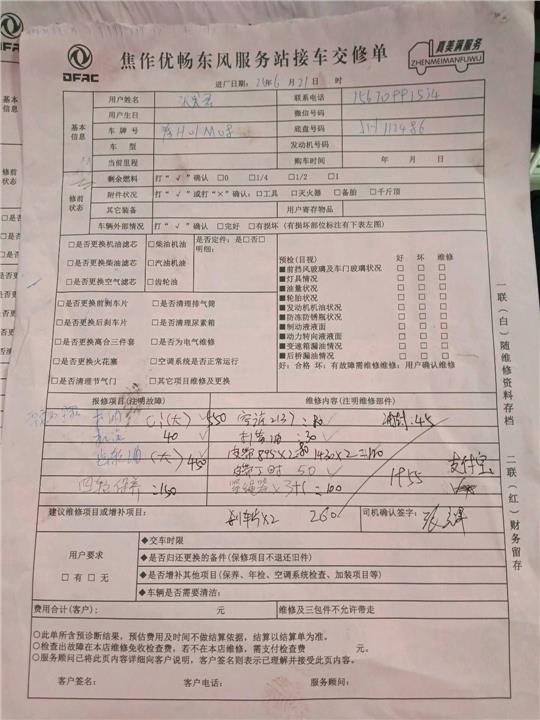 DFAC
焦作优畅东风服务站接车交修单
真美满服务
ZHENMEIMANFUWU
进厂日期: 24年 6 月 21日 时
基本信息
用户姓名
联系电话 15670991534
用户生日 微信号码
车牌号 底盘号码
车 型 发动机号码
当前里程 购车时间 年 月 日
修前状态
剩余燃料 打“√”确认 □0 □1/4 □1/2 □1
附件状况 打“√”或打“×”确认:□工具 □灭火器 □备胎 □千斤顶
其它装备 用户寄存物品
车辆外部情况 打“√”确认 □完好 □有损坏(有损部位标注右下表左图)
□是否更换机油滤芯 □柴油机油
□是否更换柴油滤芯 □汽油机油
□是否更换空气滤芯 □齿轮油
是否定件:是□否□
明细:
□是否更换前刹车片 □是否清理排气筒
□是否更换后刹车片 □是否清理尿素箱
□是否更换离合三件套 □是否为电气维修
□是否更换火花塞 □空调系统是否正常运行
□是否清理节气门 □其它项目维修及更换
预检(目视) 好 坏 维修
■前挡风玻璃及车门玻璃状况 □ □ □
■灯具情况 □ □ □
■油量状况 □ □ □
■轮胎状况 □ □ □
■发动机机油状况 □ □ □
■防冻防锈瓶状况 □ □ □
■制动液液面 □ □ □
■动力转向液液面 □ □ □
■变速箱漏油情况 □ □ □
■后桥漏油情况 □ □ □
好:合格 坏:有故障需维修维修:用户确认维修
报修项目(注明故障) 维修内容(注明维修部件)
机油 Ci(大) 550 空滤2131 =80 :45
机滤 40 :30
(大) 450 皮带895X2=80 1430X2=100
50 1955 支付宝
四轮保养 =150 3+1 =100
刹车片X2 260
建议维修项目或增补项目: 司机确认签字:
用户要求
□有 □无
◆交车时限
◆是否归还更换的备件(保修项目不退还旧件)
◆是否增补其他项目(保养、年检、空调系统检查、加装项目等)
◆车辆是否需要清洁:
费用合计(客户): 元 维修及三包件不允许带走
○此单所含预诊断结果,预估费用及时间不做结算依据,结算以结算单为准。
○检查出故障在本店维修免收检查费,若不在本店维修,需支付检查费 元。
○服务顾问已将此页内容详细向客户说明,客户签名则表示已理解并接受此页内容。
客户签名: 客户电话: 服务顾问:
一联(白)随维修资料存档 二联(红)财务留存